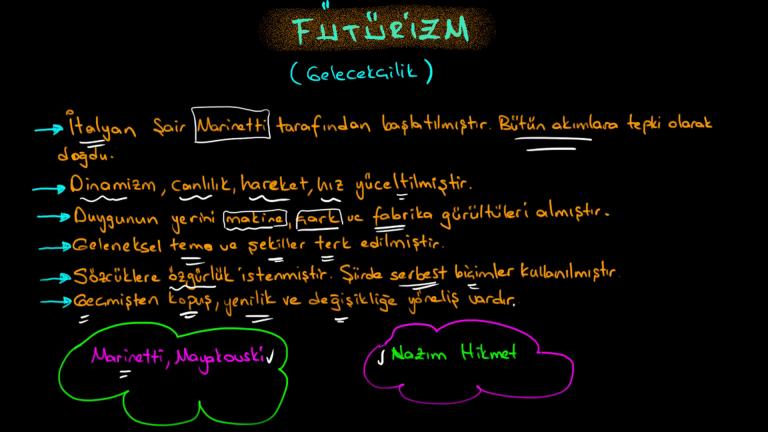 FÜTÜRİZM
(Gelecekçilik)
İtalyan Şair Marinetti tarafından başlatılmıştır. Bütün akımlara tepki olarak
doğdu.
Dinamizm, canlılık, hareket, hız yüceltilmiştir.
Duygunun yerini makine, çark ve fabrika gürültüleri almıştır.
Geleneksel tema ve şekiller terk edilmiştir.
Sözcüklere özgürlük istenmiştir. Şiirde serbest biçimler kullanılmıştır.
Geçmişten kopuş, yenilik ve değişikliğe yöneliş vardır.
Marinetti, Mayakovski
Nazım Hikmet